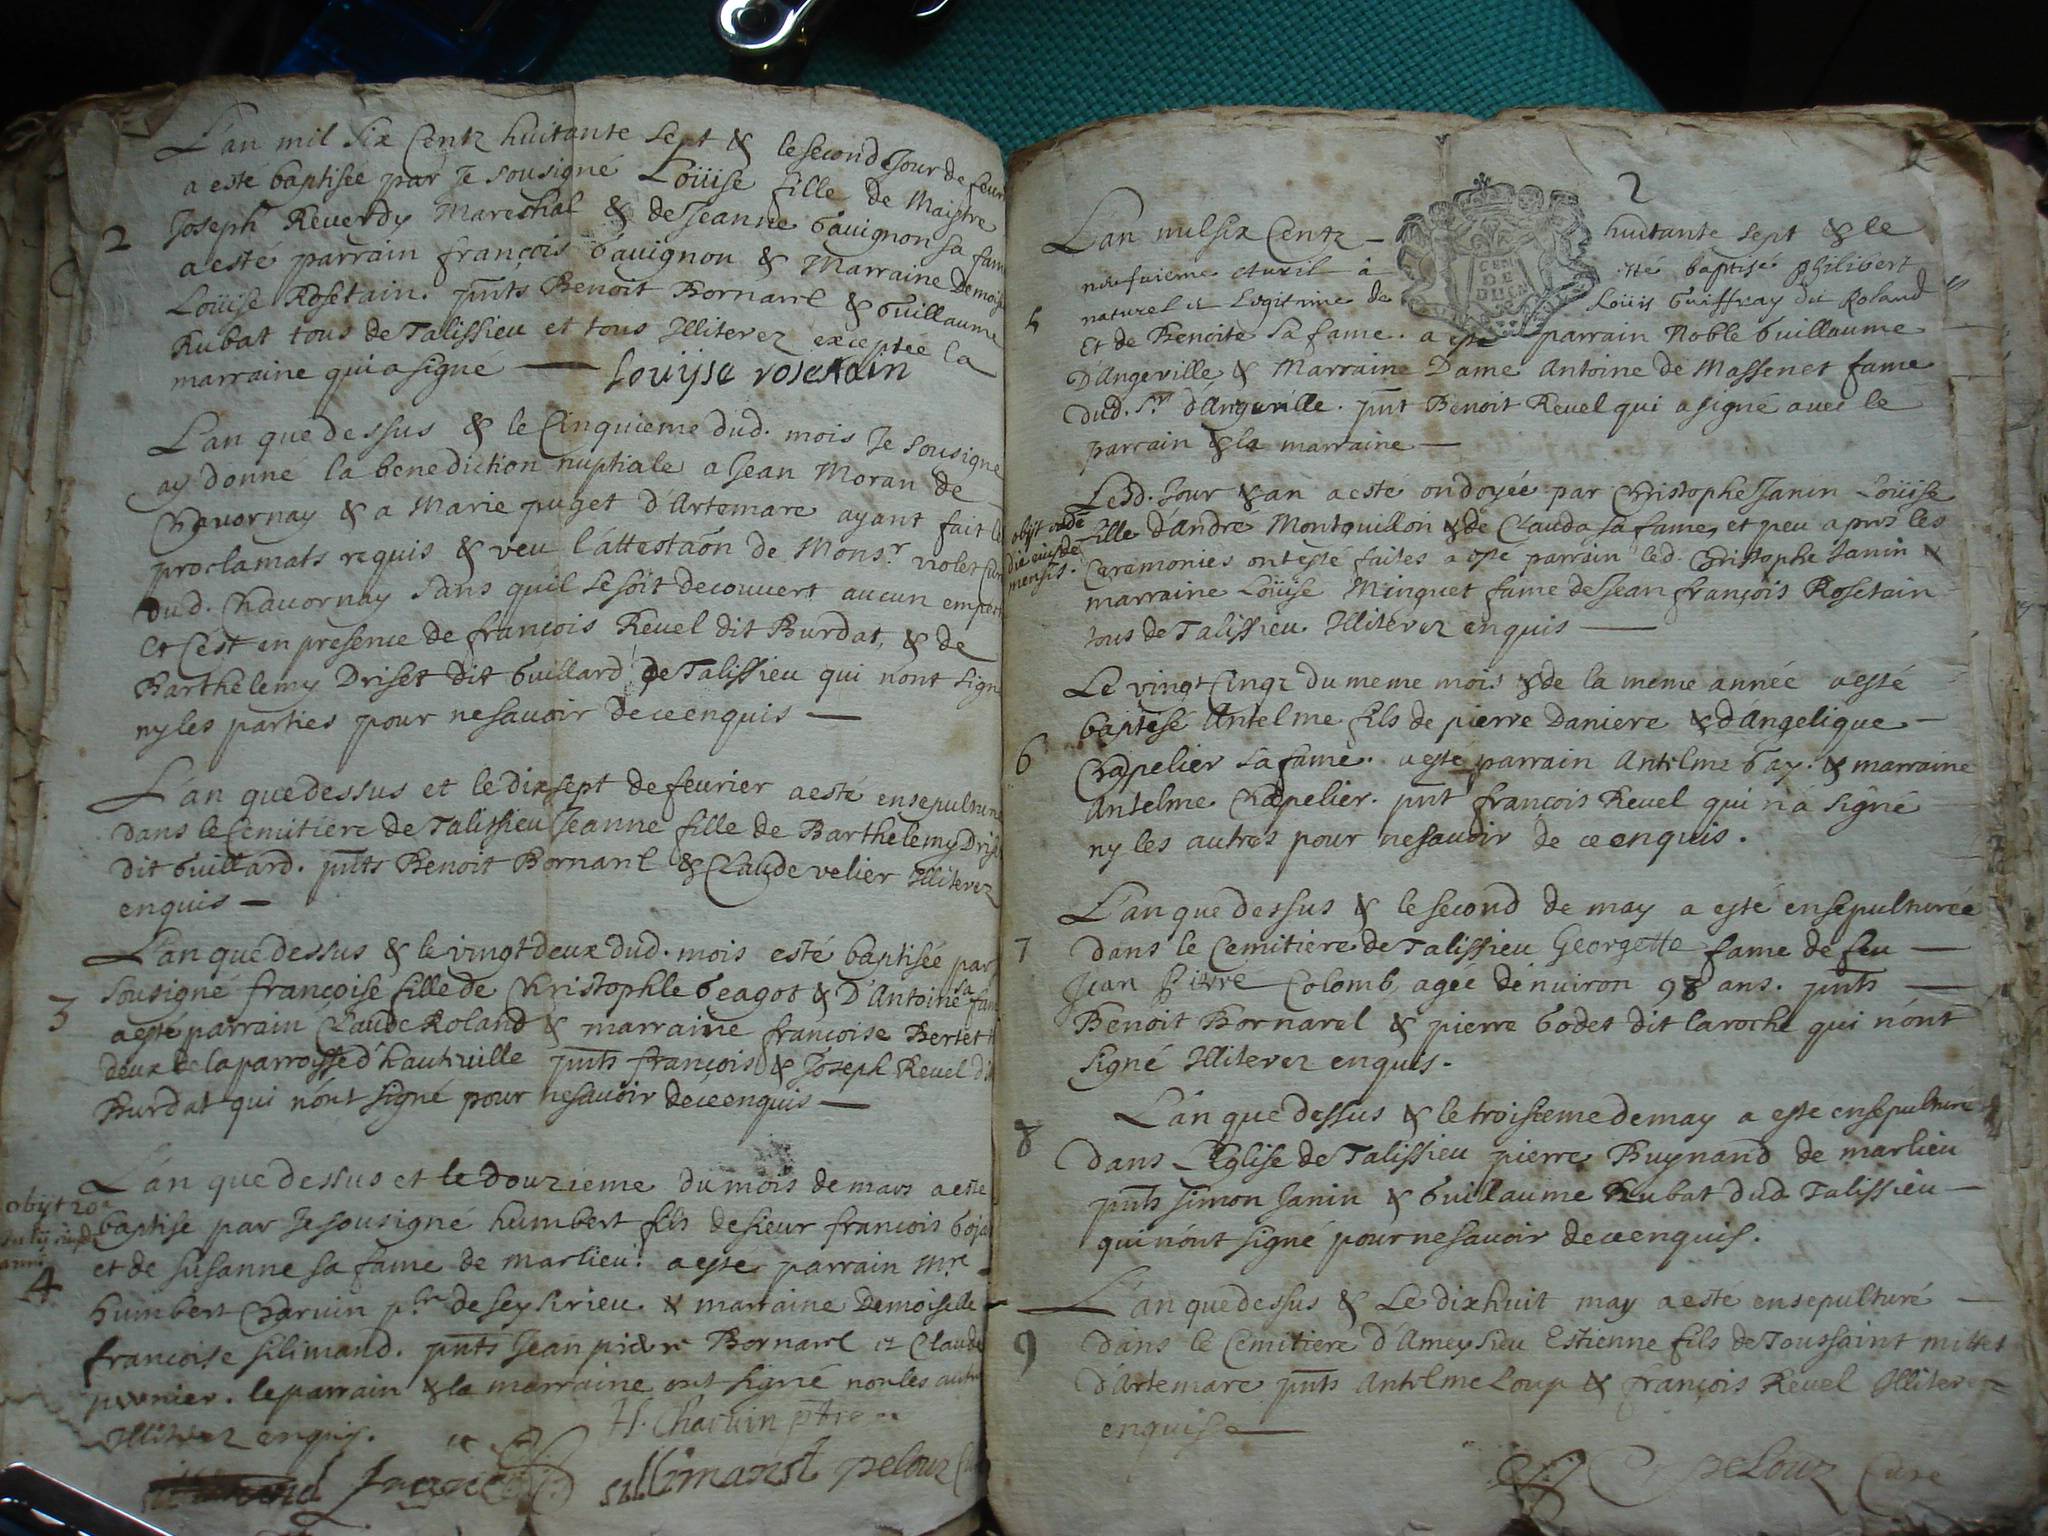 L'an mil six Centz huitante sept & le second Jour de feur
a esté baptisée par Je sousigné Loüise fille de Maistre
2 Joseph Reuerdy Mareschal & de Jeanne Gauignon sa fam
a esté parrain françois Gauignon & Marraine Demois
Loüise Rosetain. pnts Benoit Bornarel & Guillaume
Rubat tous de Talissieu et tous Illiterez exceptee la
marraine qui a signé — Louyse rosetain
L'an que dessus & le Cinquieme dud. mois Je sousigne
ay donné la benediction nuptiale a Jean Moran de
Chauornay & a Marie puget d'Artemare ayant fait le
proclamats requis & veu l'attestaõn de Monsr. violet Cur
dud. Chauornay sans quil se soit decouuert aucun empe
Et C'est en presence de françois Reuel dit Burdat, & de
Barthelemy Driset dit Guillard de Talissieu qui n'ont sign
ny les parties pour ne sauoir de ce enquis —
L'an que dessus et le dixsept de feurier a esté ensepulture
dans le Cemitiere de Talissieu Jeanne fille de Barthelemy Dris
dit Guillard. pnts Benoit Bornarel & Claude velier Illiterez
enquis —
L'an que dessus & le vingt deux dud. mois esté baptisée par
3 sousigné françoise fille de Christophle Geagot & D'Antoine sa fam
a esté parrain Claude Roland & marraine françoise Bertet
deux de la parroisse d'hauteville pnts françois & Joseph Reuel di
Burdat qui n'ont signé pour ne sauoir de ce enquis —
L'an que dessus et le Douzieme du mois de mars a este
obijt 20a
baptise par Je sousigné humbert fils de sieur françois Goja
et de susanne sa fame de marlieu. a esté parrain Mre
4 humbert Charuin pbr de seyssirieu & marraine Demoiselle
francoise silimand. pnts Jean pierre Bornarel et Claude
prenier. le parrain & la marraine ont signé non les autr
Illiterez enquis.
H. Charuin ptre
sillimand pelouz Cu
2
L'an mil six Centz — huitante sept & le
neufuieme Auril — a esté baptisé philibert
5 naturel et Legitime de Loüis Guiffray dit Roland
Et de Benoite sa fame. a esté parrain Noble Guillaume —
D'Angeville & Marraine Dame Antoine de Massenet fame
dud. Sr. d'Angeville. pnt Benoit Reuel qui a signé auec le
parrain & la marraine —
Led. Jour & an a esté ondoyée par Christophe Janin Loüise
obijt
die eiusde
mensis.
fille d'André Montquillon & de Clauda sa fame, et peu apres les
Ceremonies ont esté faites a esté parrain led. Christophe Janin &
marraine Loüise Minguet fame de Jean françois Rosetain
tous de Talissieu Illiterez enquis —
Le vingt Cinqz du meme mois & de la meme année a esté
baptesé Antelme fils de pierre Daniere & d'Angelique —
6 Chapelier sa fame. a esté parrain Antelme Gay. & marraine
Antelme Chapelier. pnt françois Reuel qui n'a signé
ny les autres pour ne sauoir de ce enquis.
L'an que dessus & le second de may a esté ensepulturée
7 dans le Cemitiere de Talissieu Georgette fame de feu —
Jean Pierre Colomb, agée d'enuiron 98 ans. pnts —
Benoit Bornarel & pierre Godet dit laroche qui n'ont
signé Illiterez enquis.
L'an que dessus & le troisieme de may a este ensepulturé
8 dans L'Eglise de Talissieu pierre Buynand de marlieu
pnts simon Janin & Guillaume Rubat dud Talissieu —
qui n'ont signé pour ne sauoir de ce enquis.
L'an que dessus & Le dixhuit may a esté ensepulturé —
9 dans le Cemitiere d'Ameysieu Estienne fils de Toussaint millet
d'Artemare pnts Antelme Loup & françois Reuel Illiterez
enquis —
pelouz Curé